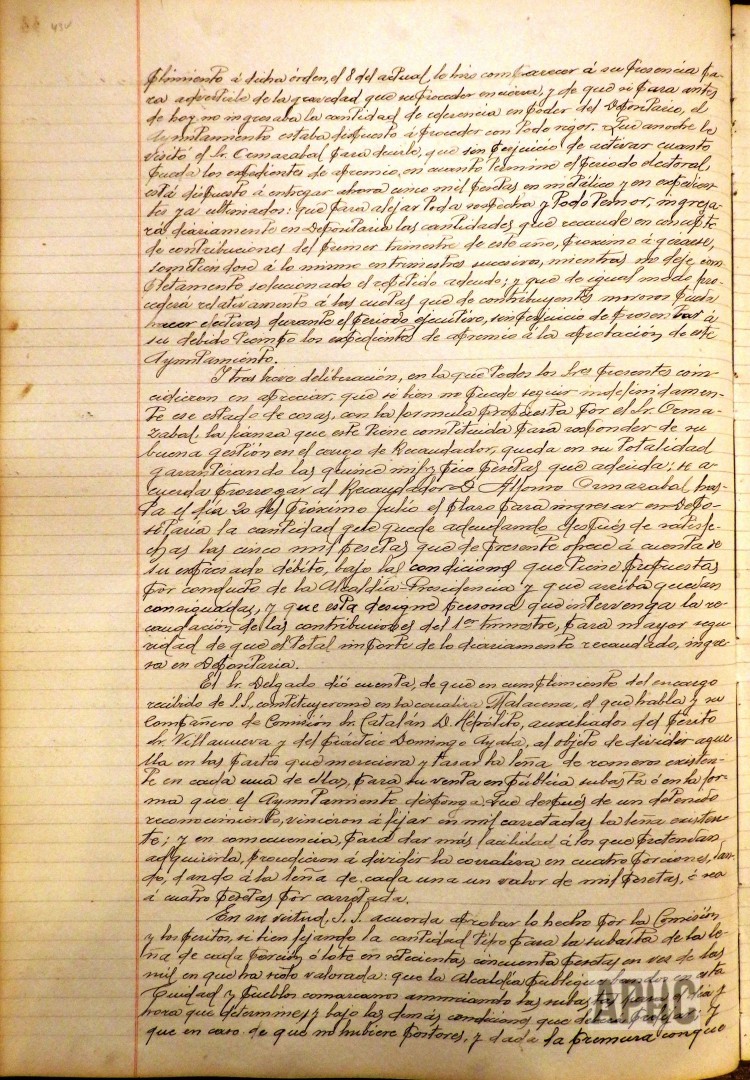 plimiento á dicha órden, el 8 del actual, le hizo comparecer á su presencia pa-
ra advertirle de la gravedad que su proceder encierra, y de que si para antes
de hoy no ingresaba la cantidad de referencia en poder del Depositario, el
Ayuntamiento estaba dispuesto á proceder con todo rigor. Que anoche le
visitó el Sr. Ormazabal para decirle, que sin perjuicio de activar cuanto
pueda los expedientes de apremio, en cuanto termine el periodo electoral,
está dispuesto á entregar ahora cinco mil pesetas en metálico y en expedien-
tes ya ultimados: que para alejar toda sospecha y todo temor, ingresa-
rá diariamente en Depositaria las cantidades que recaude en concepto
de contribuciones del primer trimestre de este año, próximo á
sometiendose á lo mismo en trimestres sucesivos, mientras no deje com-
pletamente solucionado el repetido adeudo; y que de igual modo pro-
cederá relativamente á las cuotas que de contribuyentes morosos pueda
hacer efectivas durante el periodo ejecutivo, sin perjuicio de presentar á
su debido tiempo los expedientes de apremio á la aprobación de este
Ayuntamiento.
Y tras breve deliberación, en la que todos los Sres presentes coin-
cidieron en apreciar, que si bien no puede seguir indefinidamen-
te ese estado de cosas, con la fórmula propuesta por el Sr. Orma-
zabal, la fianza que este tiene constituida para responder de su
buena gestión en el cargo de Recaudador, queda en su totalidad
garantizando las quince mil y pico pesetas que adeuda; se a-
cuerda prorrogar al Recaudador D. Alfonso Ormazabal, has-
ta el dia 20 del próximo Julio el plazo para ingresar en Depo-
sitaria la cantidad que quede adeudando después de satisfe-
chas las cinco mil pesetas que de presente ofrece á cuenta de
su expresado débito, bajo las condiciones que tiene propuestas
por conducto de la Alcaldía-Presidencia y que arriba quedan
consignadas, y que esta designe persona que intervenga la re-
caudación de las contribuciones del 1er trimestre, para mayor segu-
ridad de que el total importe de lo diariamente recaudado, ingre-
sa en Depositaria.
El Sr. Delgado dió cuenta, de que en cumplimiento del encargo
recibido de S.S., constituyeronse en la corraliza Matacena, el que habla y su
compañero de Comisión Sr. Catalán D. Hipólito, auxiliados del perito
Sr. Villanueva y del práctico Domingo Ayala, al objeto de dividir aque-
lla en las partes que mereciera y tasar la leña de romeros existen-
te en cada una de ellas, para su venta en pública subasta ó en la for-
ma que el Ayuntamiento disponga. Que después de un detenido
reconocimiento, vinieron á fijar en mil carretadas la leña existen-
te; y en consecuencia, para dar más facilidad á los que pretendan
adquirirla, procedieron á dividir la corraliza en cuatro porciones,
dando á la leña de cada una un valor de mil pesetas, ó sea
á cuatro pesetas por carretada.
En su virtud, S.S. acuerda aprobar lo hecho por la Comisión
y los peritos, si bien fijando la cantidad tipo para la subasta de la le-
ña de cada porción ó lote en setecientas cincuenta pesetas en vez de las
mil en que ha sido valorada: que la Alcaldía publique bandos en esta
Ciudad y pueblos comarcanos anunciando las subastas para el dia y
hora que determine y bajo las demás condiciones que y
que en caso de que no hubiere postores, y dada la premura con que
APHC